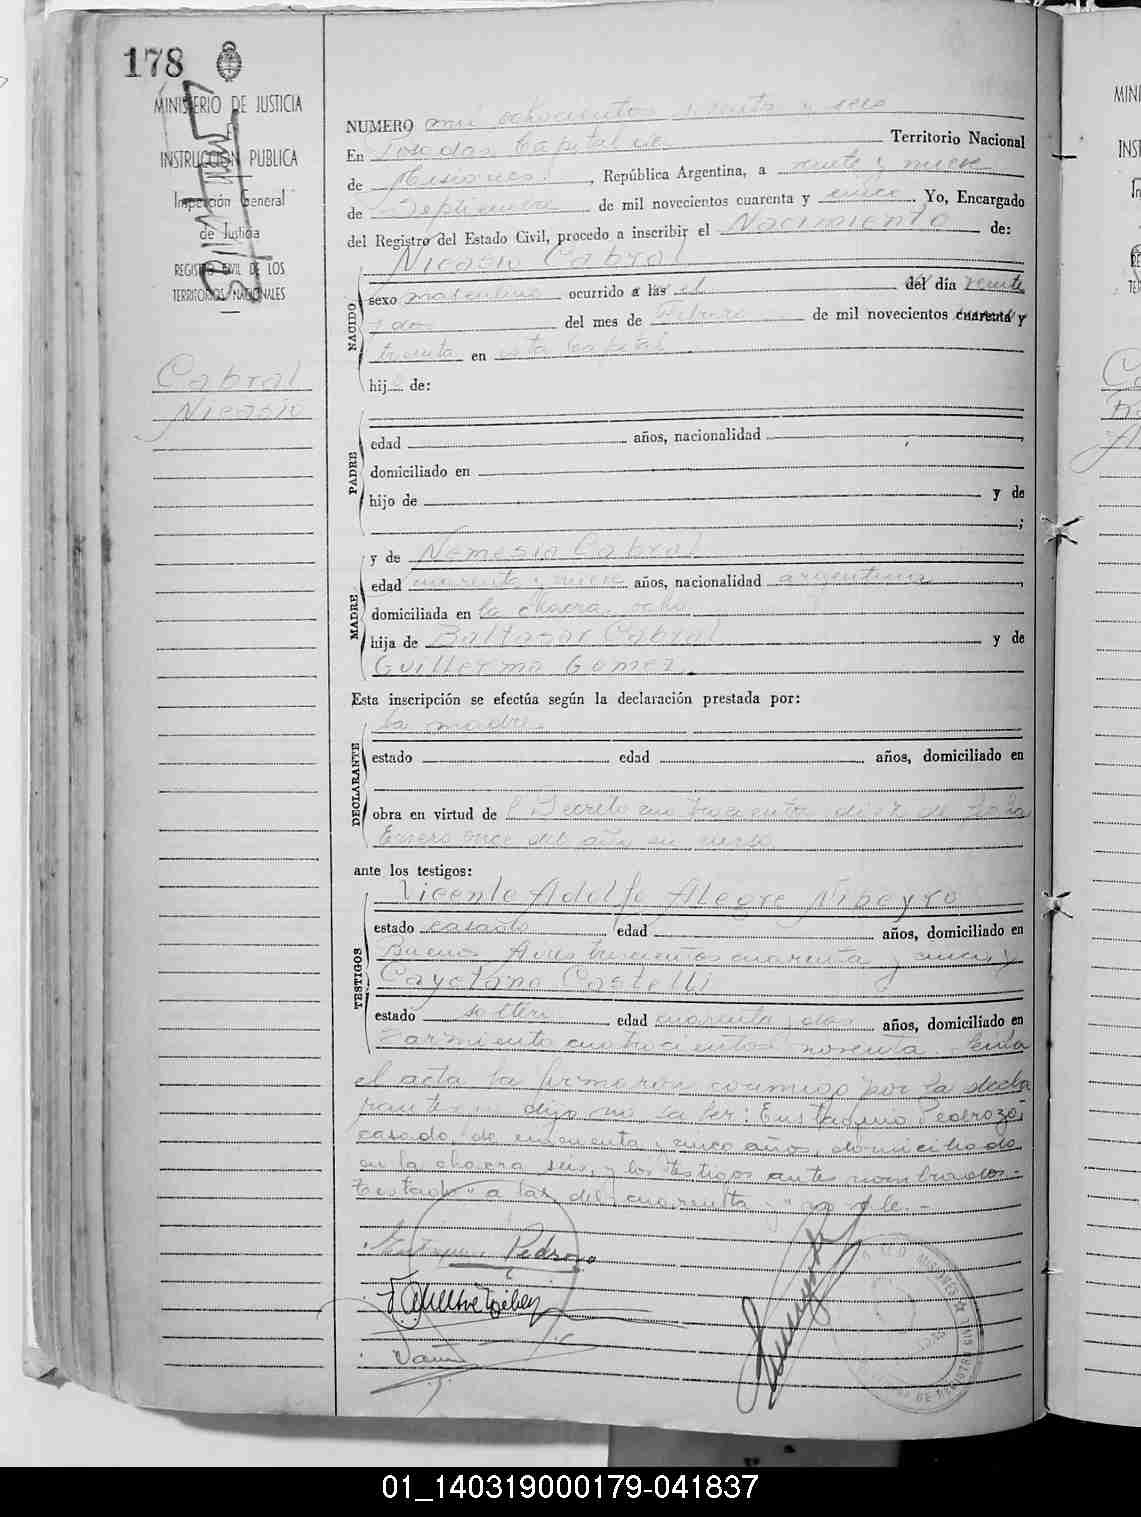 178
MINISTERIO DE JUSTICIA
INSTRUCCION PUBLICA
Inspección General
de Justicia
REGISTRO CIVIL DE LOS
TERRITORIOS NACIONALES
Cabral
Nicasio
NUMERO mil ochocientos y seis
En Posadas Capital de Territorio Nacional
de Misiones, República Argentina, a veinte y nueve
de Septiembre de mil novecientos cuarenta y cinco. Yo, Encargado
del Registro del Estado Civil, procedo a inscribir el Nacimiento de:
NACIDO
Nicasio Cabral
sexo masculino ocurrido a las el del día veinte
y dos del mes de Febrero de mil novecientos cuarenta y
treinta en esta capital
hij de:
PADRE
edad años, nacionalidad
domiciliado en
hijo de y de
;
MADRE
y de Nemesia Cabral
edad cuarenta y años, nacionalidad argentina,
domiciliada en la chacra ocho
hija de Baltazar Cabral y de
Guillerma Gomez.
Esta inscripción se efectúa según la declaración prestada por:
DECLARANTE
la madre
estado edad años, domiciliado en
obra en virtud de l Decreto cuatrocientos diez de fecha
Enero once del año en curso
ante los testigos:
TESTIGOS
Vicente Adolfo Alegre Nibeyro
estado casado edad años, domiciliado en
Buenos Aires trescientos cuarenta y cinco y
Cayetano Castelli
estado soltero edad cuarenta y dos años, domiciliado en
Sarmiento cuatrocientos noventa. Leida
el acta la firmaron conmigo por la decla
rante que dijo no saber: Eustaquio Pedrozo,
casado, de y cinco años, domiciliado
en la chacra seis, y los testigos antes nombrados.-
Testado "a las, del, cuarenta y" no vale.-
Pedrozo
MISIONES
01_140319000179-041837